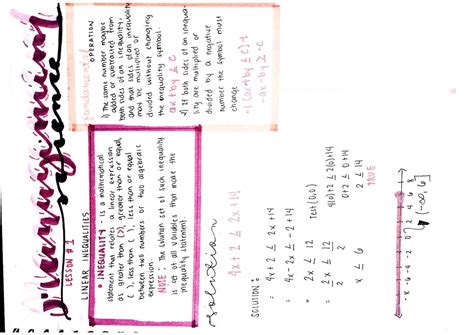 LESSON #1
LINEAR INEQUALITIES
• INEQUALITY - is a mathematical
statement that relates a linear expression
as greater than (>), greater than or equal
( ), less than ( ), less than or equal
between two numbers or two algebraic
expression.
NOTE: The solution set of such inequality
is set of all variables that make the
inequality statement.
OPERATION
1) The same number maybe
added or subtracted from
both sides of an inequality
and that sides of an inequality
may be multiplied or
divided without changing
the inequality symbol.
ax+by ≤ c
2) If both sides of an inequa-
lity are multiplied or
divided by a negative
number the symbol must
change.
-1(ax+by ≤ c)-1
-ax-by ≥ -c
solution
4x + 2 ≤ 2x + 14
SOLUTION:
= 4x + 2 ≤ 2x + 14
= 4x - 2x ≤ -2 + 14
= 2x ≤ 12
= 2x ≤ 12
2 2
x ≤ 6
Test (0,0)
4(0)+2 ≤ 2(0)+14
0+2 ≤ 0+14
2 ≤ 14
TRUE
-8 -6 -4 -2 0 2 4 6 8
(-∞, 6]